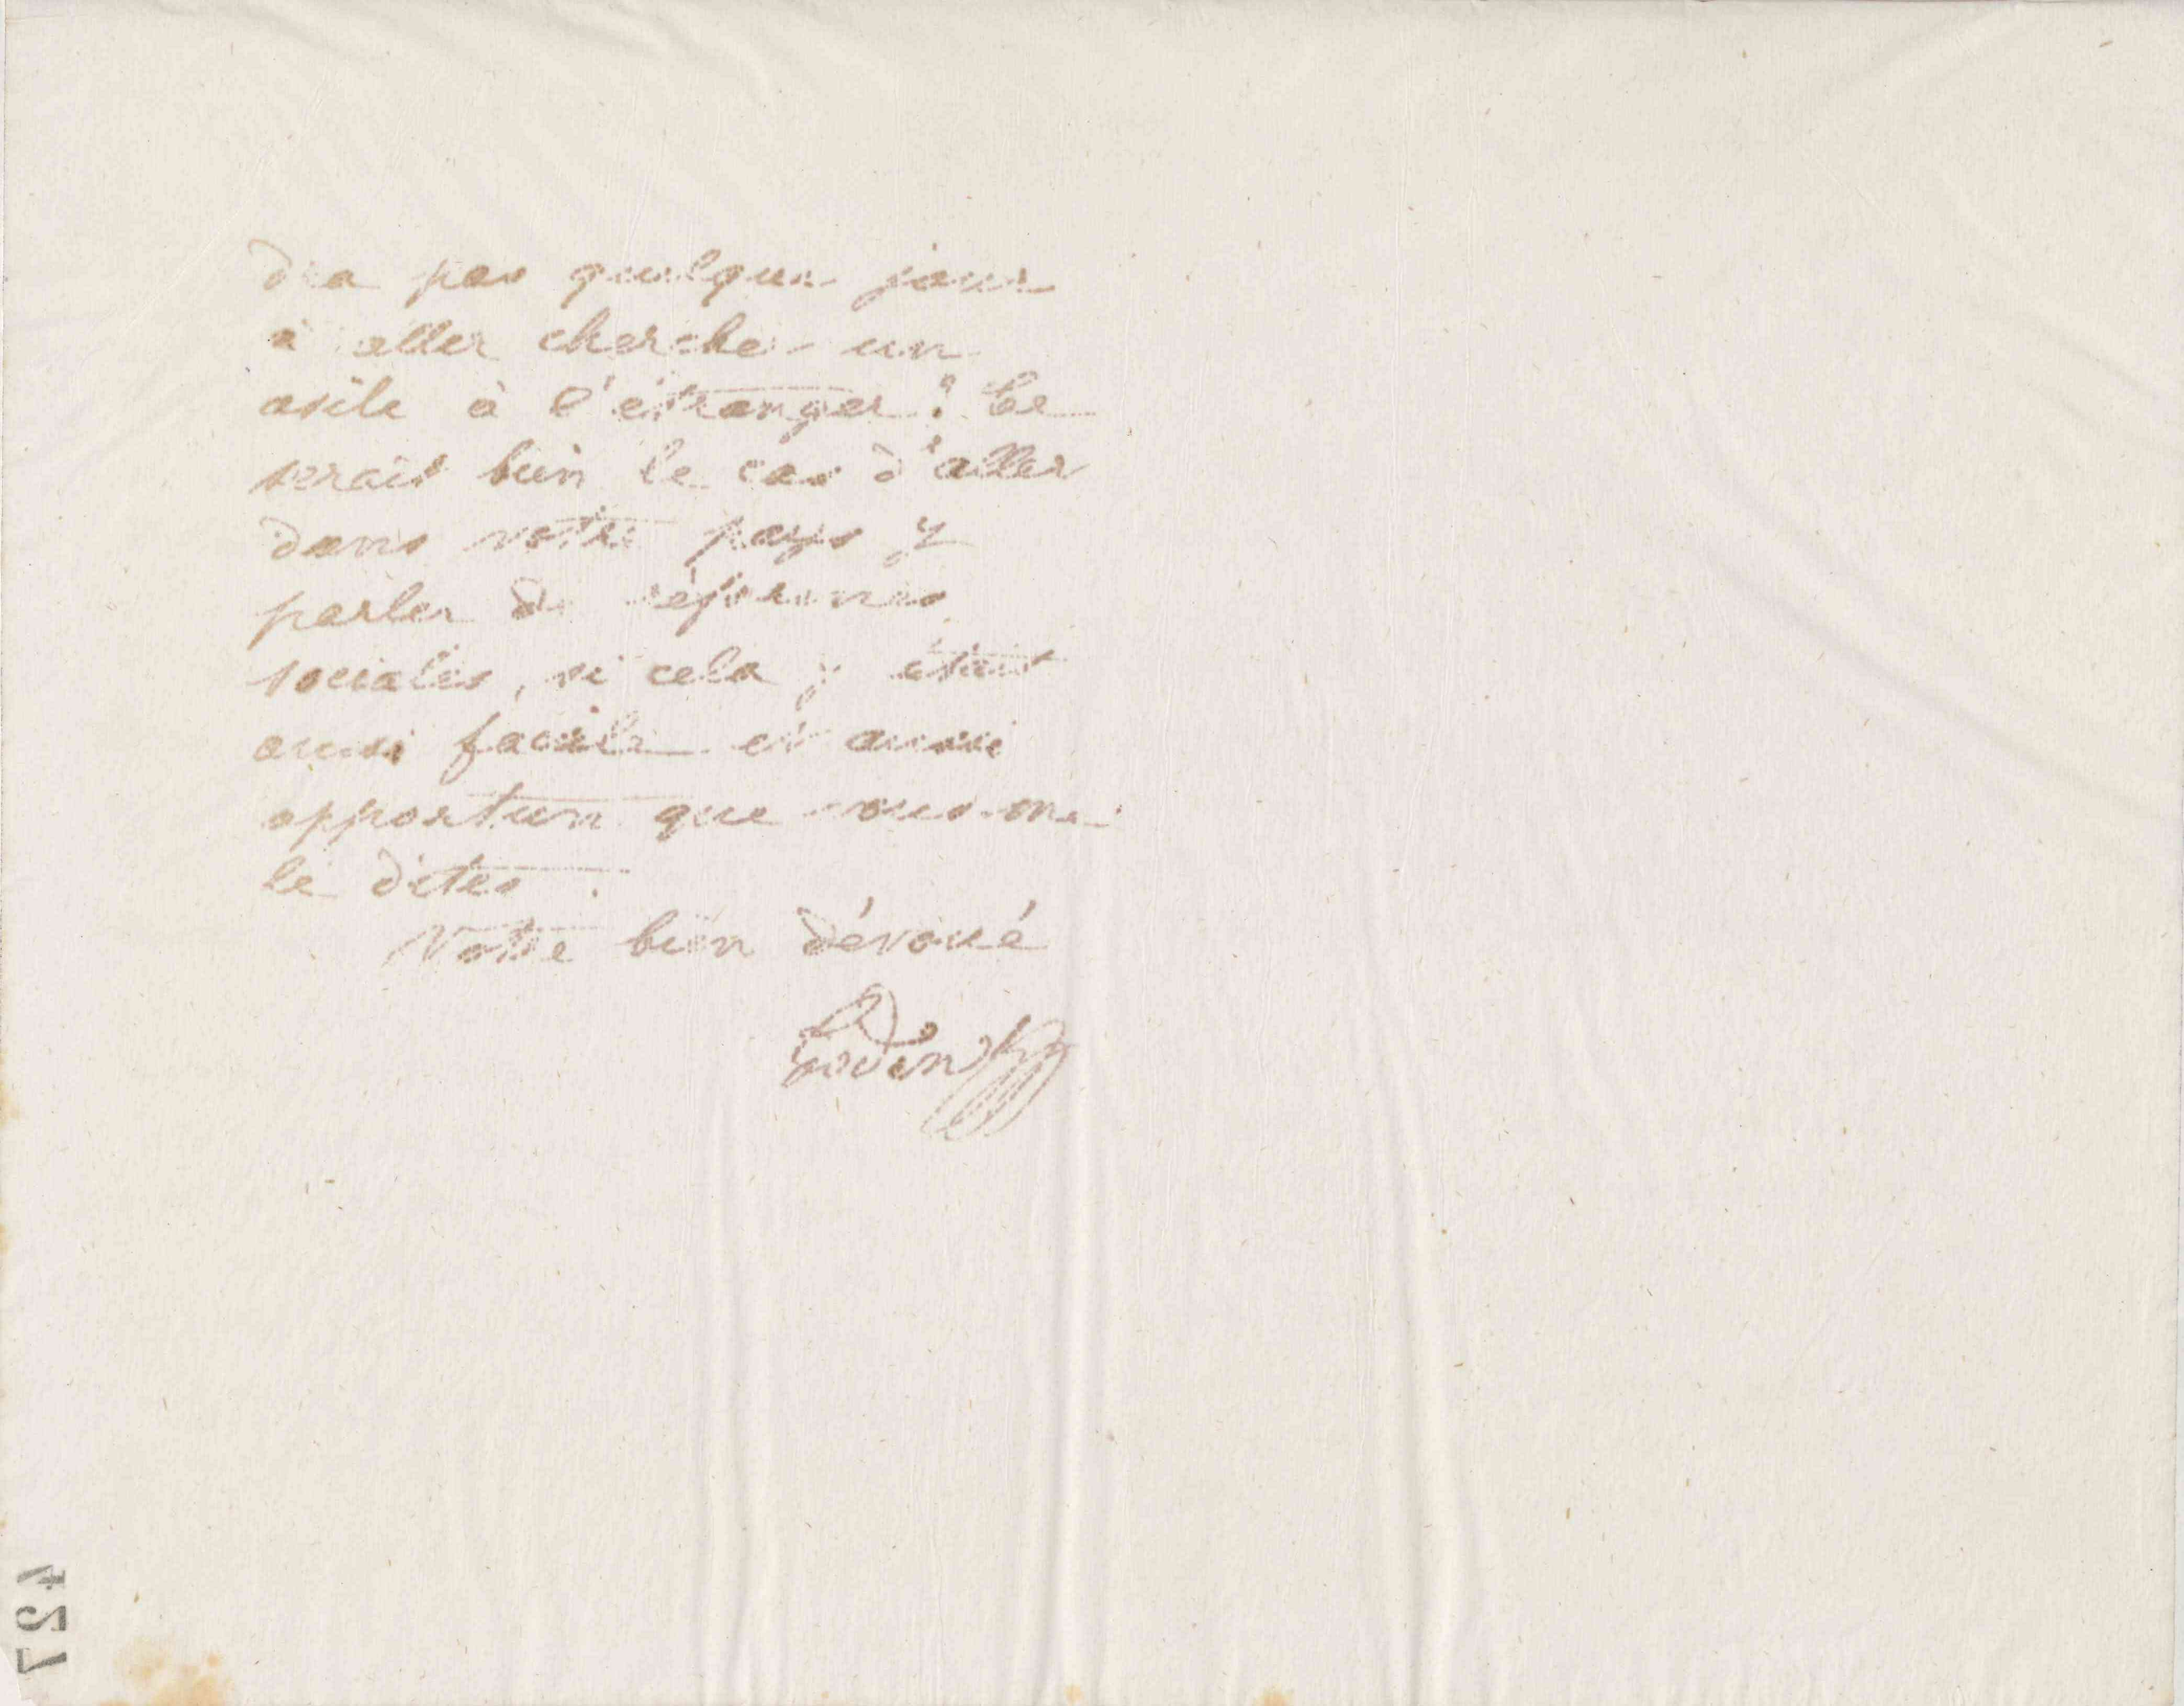 dra pas quelque jour
à aller chercher un
asile à l'étranger ? Ce
serait bien le cas d'aller
dans votre pays y
parler de réformes
sociales, si cela y était
aussi facile et aussi
opportun que vous me
le dites.
Votre bien dévoué
Godin
427